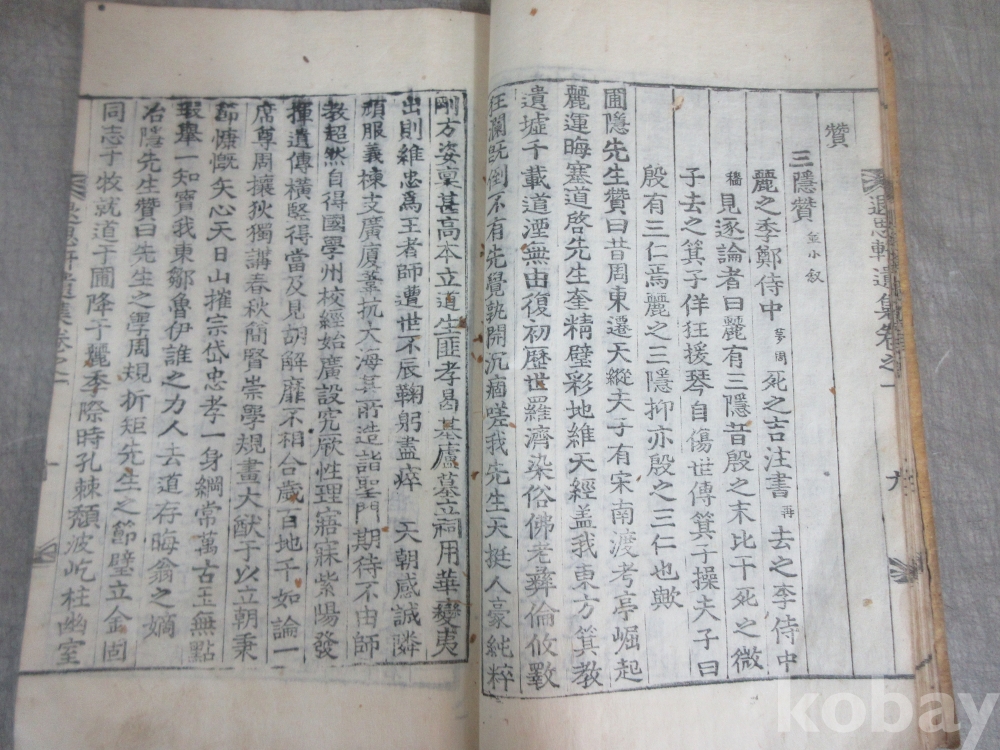 贊
三隱贊 並小叙
麗之季鄭侍中 夢周 死之吉注書 再 去之李侍中
穡 見逐論者曰麗有三隱昔殷之末比干死之微
子去之箕子佯狂援琴自傷世傳箕子操夫子曰
殷有三仁焉麗之三隱抑亦殷之三仁也歟
圃隱先生贊曰昔周東遷天縱夫子有宋南渡考亭崛起
麗運晦塞道啓先生奎精壁彩地維天經盖我東方箕教
遺墟千載道湮無由復初歷世羅濟染俗佛老彛倫攸斁
狂瀾旣倒不有先覺孰開沉痼嗟我先生天挺人豪純粹
遺集卷之一
九
剛方姿稟甚高本立道生匪孝曷基廬墓立祠用華變夷
出則維忠爲王者師遭世不辰鞠躬盡瘁 天朝感誠隣
頑服義棟支廣廈葦抗大海甚所造詣聖門期待不由師
教超然自得國學州校經始廣設究厥性理寤寐紫陽發
揮遺傳橫竪得當及見胡解靡不相合歲百地千如論一
席尊周攘狄獨講春秋簡賢崇學規畫大猷于以立朝秉
節慷慨矢心天日山摧宗岱忠孝一身綱常萬古玉無點
瑕擧一知寶我東鄒魯伊誰之力人去道存晦翁之嫡
冶隱先生贊曰先生之學周規折矩先生之節壁立金固
同志于牧就道于圃降于麗季際時孔棘頹波屹柱幽室